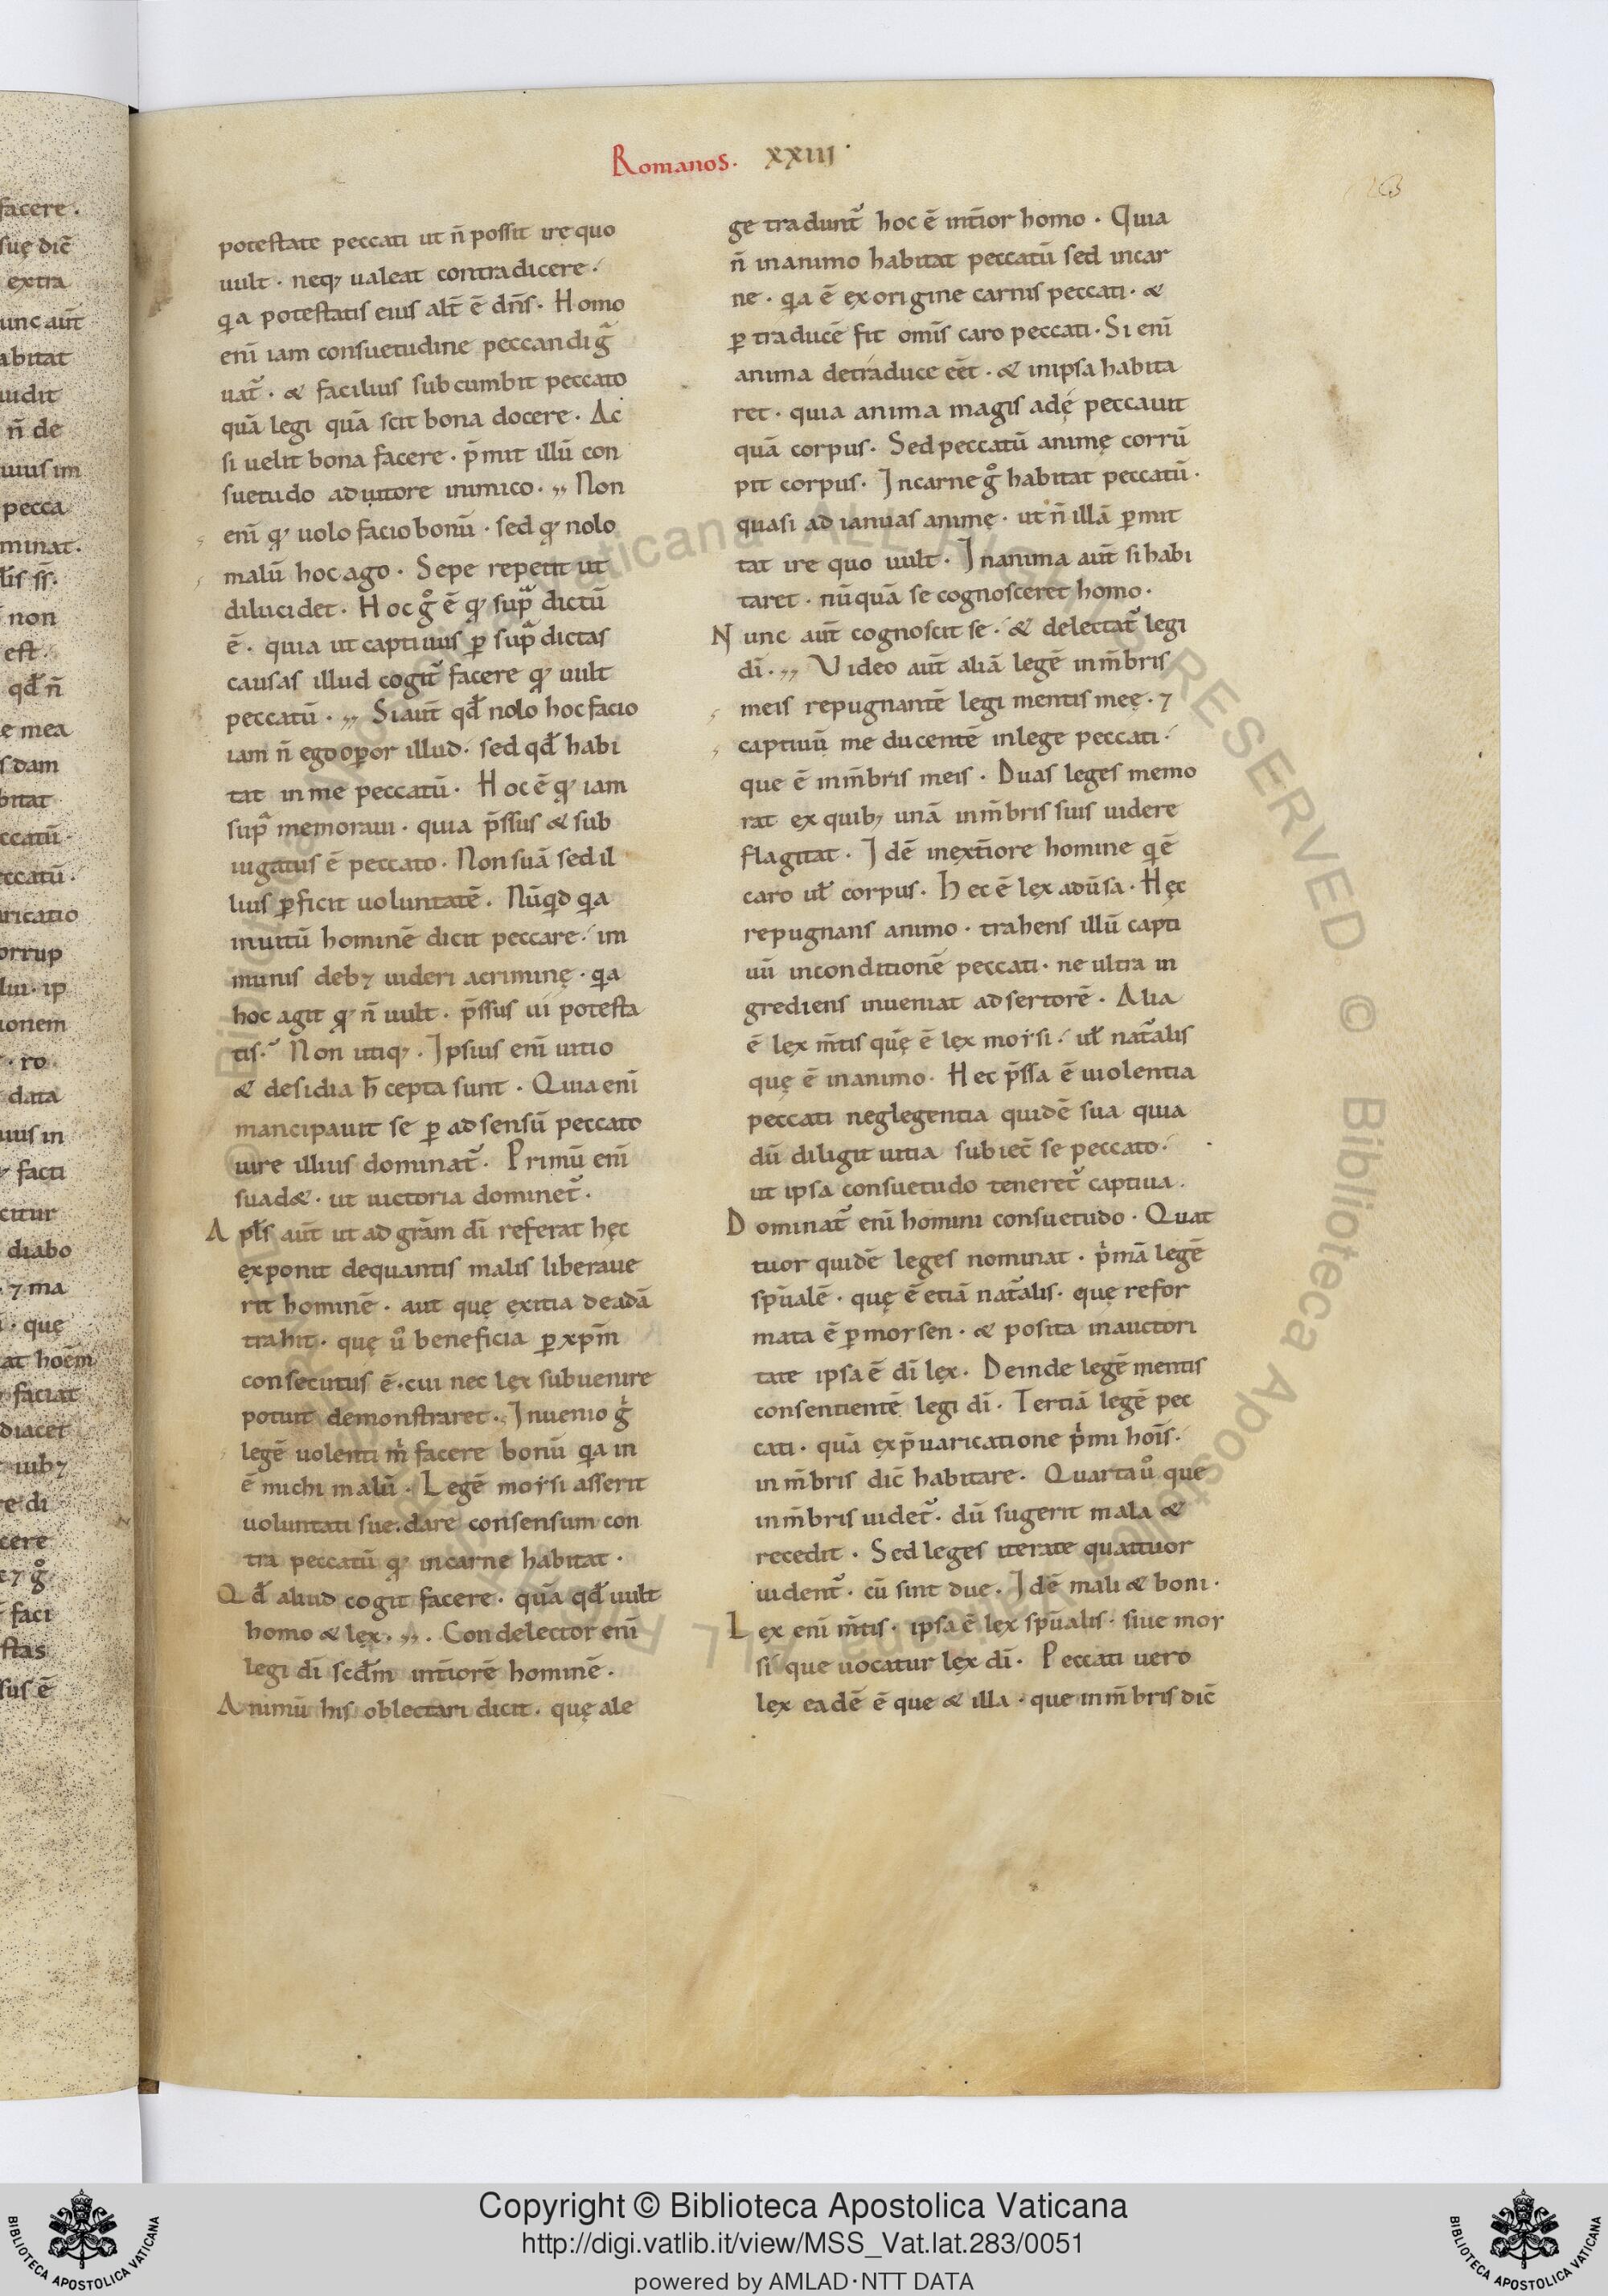 Romanos. XXIII
potestate peccati ut n̄ possit ire quo
uult · neq; ualeat contradicere ·
qia potestatis eius alt̄ ē dn̄s · Homo
eni̅ iam consuetudine peccandi g̃
uat᷑ · & facilius subcumbit peccato
quā legi quā scit bona docere · Ac
si uelit bona facere · p̄mit illū con
suetudo adiutore inimico · ,, Non
eni̅ qđ uolo facio bonū · sed qđ nolo
malū hoc ago · Sepe repetit ut
dilucidet · Hoc gͦ ē qđ supᷓ dictū
ē · quia ut captiuus ꝑ supᷓ dictas
causas illud cogit᷑ facere qđ uult
peccatū · ,, Si aut̄ qđ nolo hoc facio
iam n̄ ego oꝑor illud · sed qđ habi
tat in me peccatū · Hoc ē qđ iam
supᷓ memoraui · quia p̄ssus & sub
iugatus ē peccato · Non suā sed il
lius ꝑficit uoluntatē · Nūqd qia
inuitū hominē dicit peccare · im
munis deb& uideri a crimine · qia
hoc agit qđ n̄ uult · p̄ssus ui potesta
tis · Non utiq; · Ipsius eni̅ uitio
& desidia h̄ cepta sunt · Quia eni̅
mancipauit se ꝑ adsensū peccato
iure illius dominat᷑ · Primū eni̅
suad& · ut uictoria dominet᷑ ·
Apl̄s aut̄ ut ad grām dī referat hęc
exponit de quantis malis liberaue
rit hominē · aut que exitia de adā
trahit · quę uͦ beneficia ꝑ xpm̄
consecutus ē · cui nec lex subuenire
potuit demonstraret · Inuenio gͥ
legē uolenti mͥ facere bonū qia in
ē michi malū · Legē moysi asserit
uoluntati sue · dare consensum con
tra peccatū qđ in carne habitat ·
Qđ aliud cogit facere · quā qđ uult
homo & lex · ,, · Condelector eni̅
legi dī scdm̄ int̄iorē hominē ·
Animū his oblectari dicit · quę a le
ge tradunt᷑ hoc ē int̄ior homo · Quia
n̄ in animo habitat peccatū sed in car
ne · qia ē ex origine carnis peccati · &
ꝑ traducē fit omīs caro peccati · Si eni̅
anima de traduce eēt · & in ipsa habita
ret · quia anima magis adę peccauit
quā corpus · Sed peccatū animę corrū
pit corpus · In carne gͦ habitat peccatū ·
quasi ad ianuas animę · ut n̄ illā ꝑmit
tat ire quo uult · In anima aut̄ si habi
taret · nūquā se cognosceret homo ·
Nunc aut̄ cognoscit se · & delectat᷑ legi
dī · ,, Video aut̄ aliā legē in m̄bris
meis repugnantē legi mentis meę · ⁊
captiuū me ducentē in lege peccati ·
que ē in m̄bris meis · Duas leges memo
rat ex quib; unā in m̄bris suis uidere
flagitat · Idē in ext̄iore homine qi ē
caro ul̄ corpus · Hec ē lex adūsa · Hęc
repugnans animo · trahens illū capti
uū in conditionē peccati · ne ultra in
grediens inueniat adsertorē · Alia
ē lex m̄tis quę ē lex moysi · ul̄ nat᷑alis
quę ē in animo · Hec p̄ssa ē uiolentia
peccati neglegentia quidē sua quia
dū diligit uitia subiec̄ se peccato ·
ut ipsa consuetudo teneret᷑ captiua ·
Dominat᷑ eni̅ homini consuetudo · Quat
tuor quidē leges nominat · pͥmā legē
spūalē · quę ē etiā nat᷑alis · que refor
mata ē ꝑ morsen · & posita in auctori
tate ipsa ē dī lex · Deinde legē mentis
consentientē legi dī · Tertiā legē pec
cati · quā ex p̄uaricatione pͥmi hoīs ·
in m̄bris dic̄ habitare · Quarta uͦ que
in m̄bris uidet᷑ · dū sugerit mala &
recedit · Sed leges iterate quattuor
uident᷑ · cū sint due · Idē mali & boni ·
Lex eni̅ m̄tis · ipsa ē lex spūalis · siue moy
si que uocatur lex dī · Peccati uero
lex eadē ē que & illa · que in m̄bris dic̄
Copyright © Biblioteca Apostolica Vaticana
http://digi.vatlib.it/view/MSS_Vat.lat.283/0051
powered by AMLAD·NTT DATA